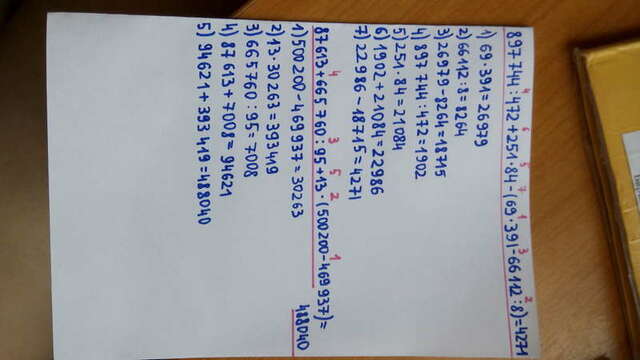 897744:472+251·84-(69·391-66112:8)=4271
1) 69·391=26979
2) 66112:8=8264
3) 26979-8264=18715
4) 897744:472=1902
5) 251·84=21084
6) 1902+21084=22986
7) 22986-18715=4271
87613+665760:95+13·(500200-469937)=
488040
1) 500200-469937=30263
2) 13·30263=393419
3) 665760:95=7008
4) 87613+7008=94621
5) 94621+393419=488040